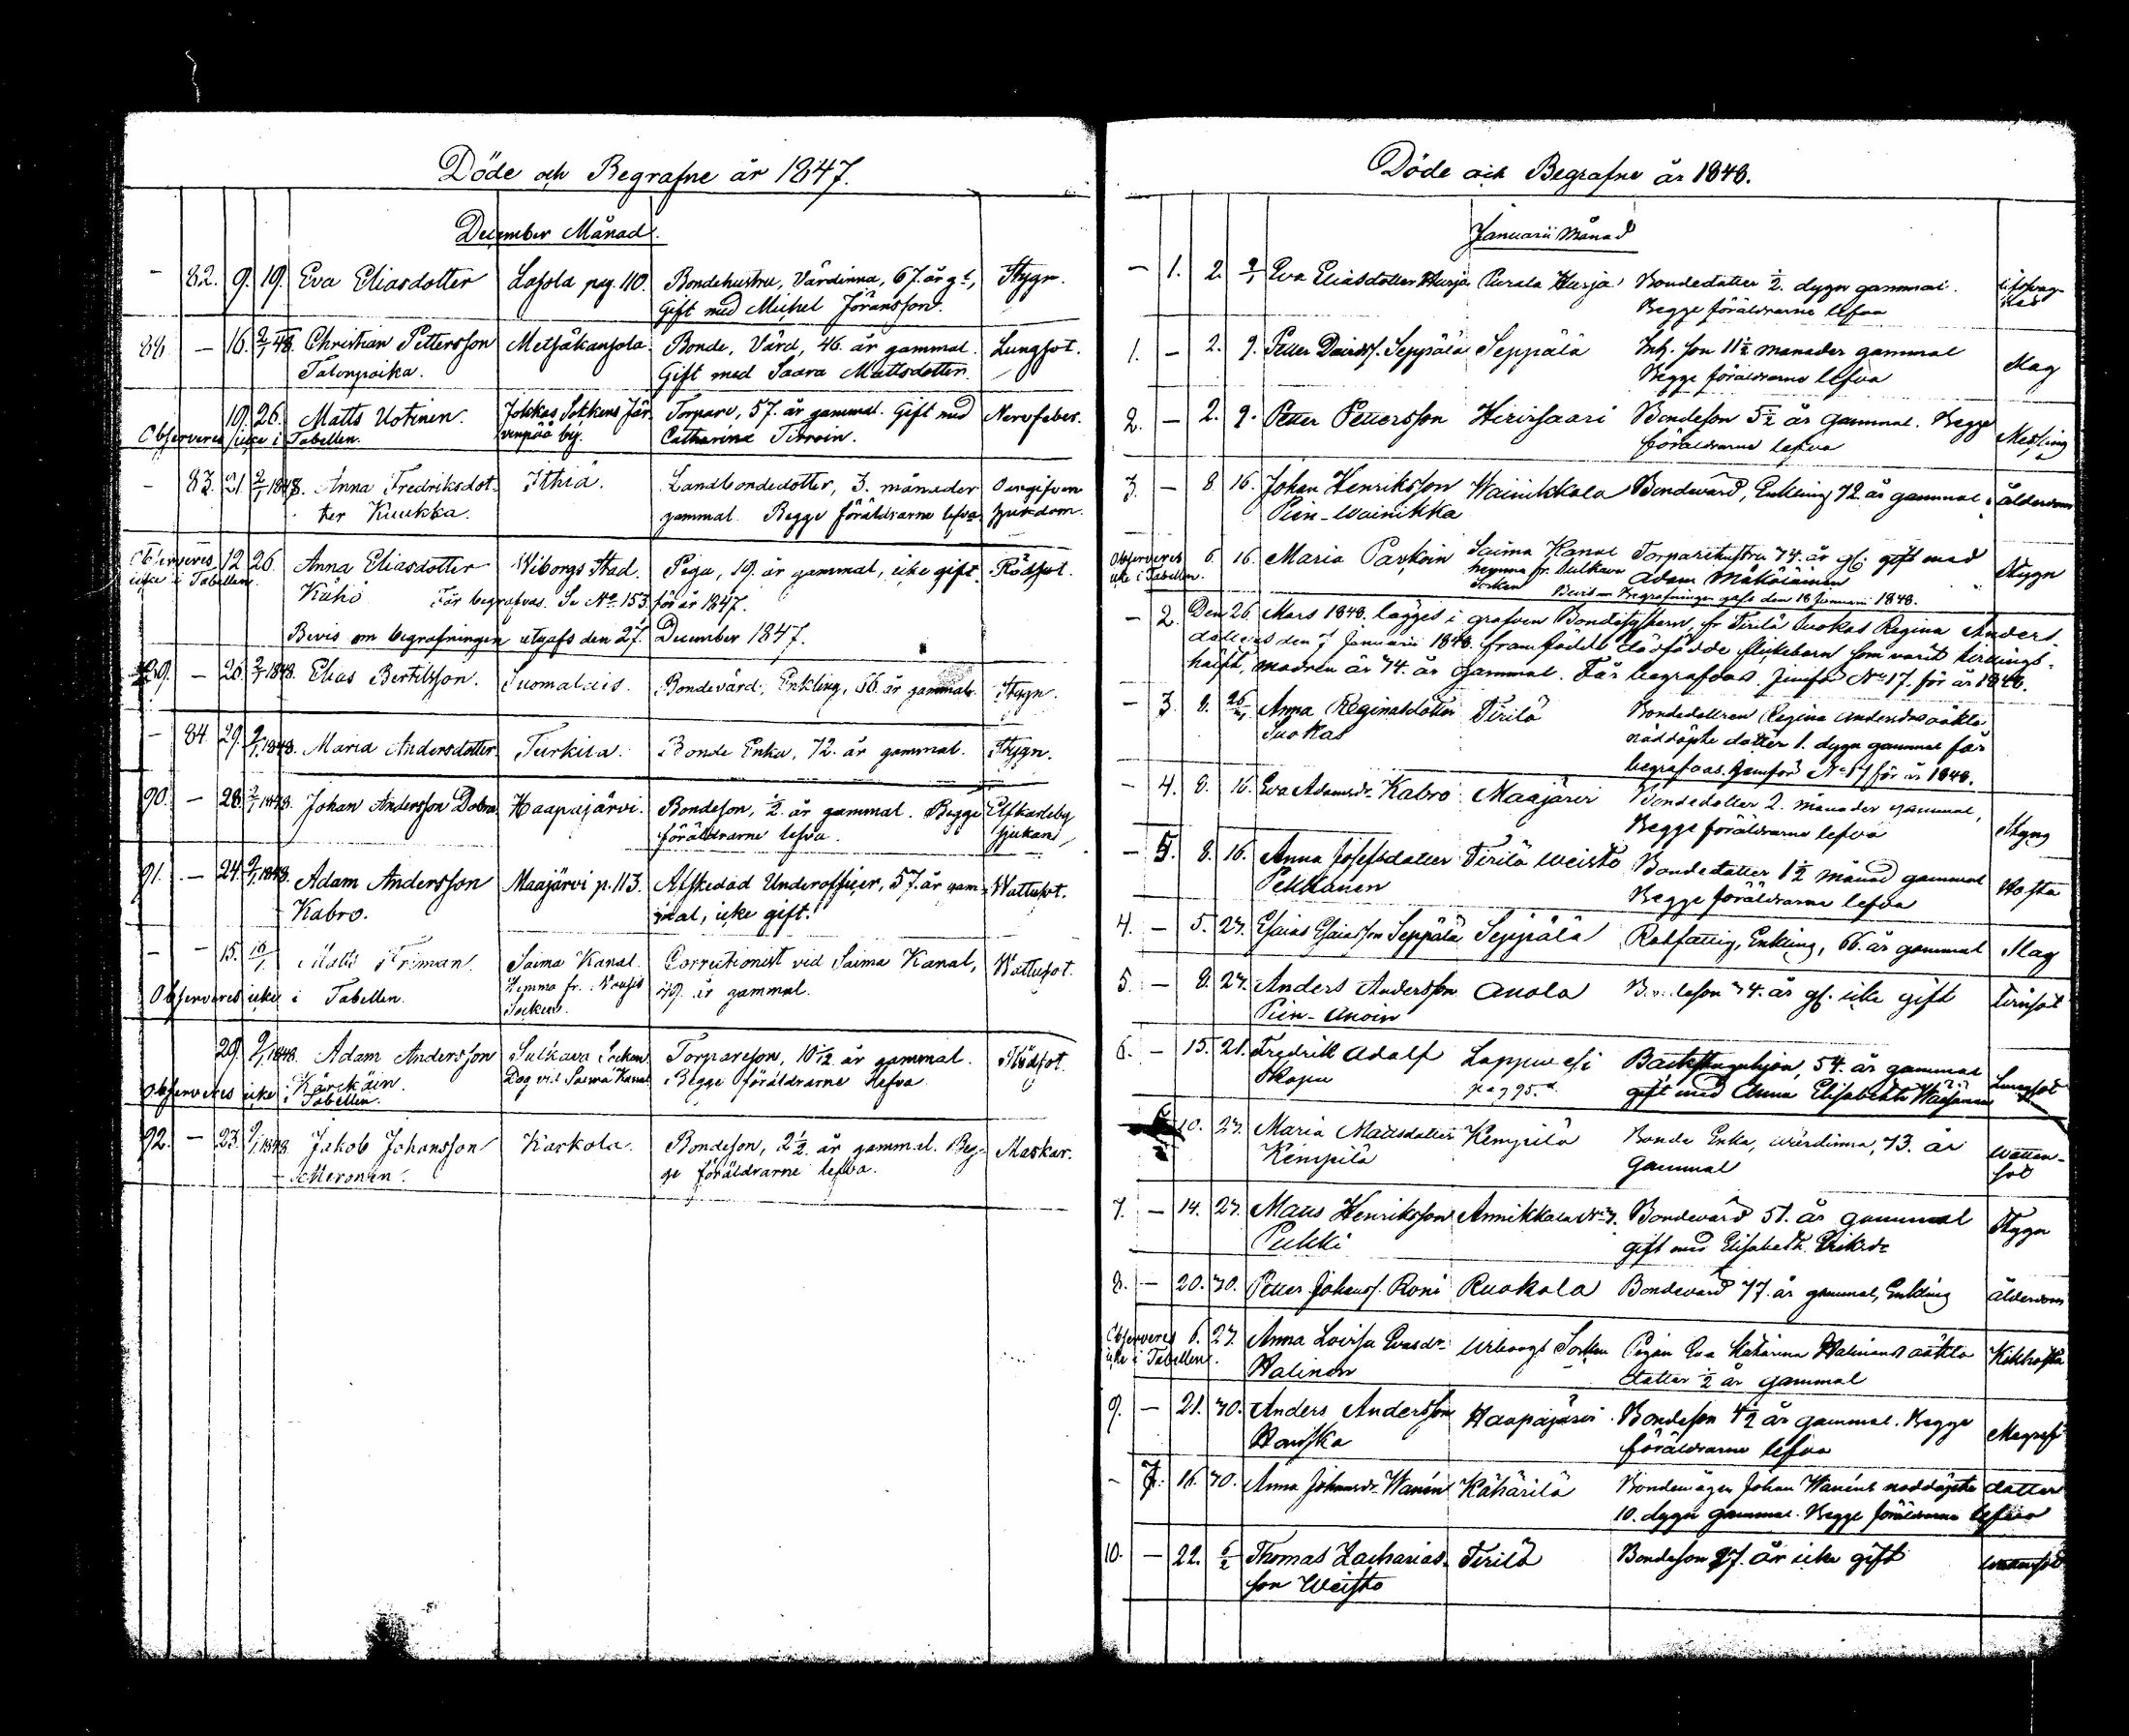 Döde och Begrafne år 1847.
December Månad.
— 82. 9. 19. Eva Eliasdotter Lasola pag. 110. Bondehustru, Värdinna, 67. år gl, Stygn.
Gift med Michel Jöransson.
88. — 16. 2/1 48. Christian Pettersson Metsäkansola. Bonde, Värd, 46. år gammal. Lungsot.
Talonpoika. Gift med Saara Mattsdotter.
19. 26. Matts Uotinen. Jokkas Sokkens Jär- Torpare, 57. år gammal. Gift med Nervfeber.
Observeras icke i Tabellen. venpää by. Catharina Tirroin.
— 83. 21. 2/1 1848. Anna Fredriksdot- Ithiä. Landbondedotter, 3. månader Oangifven
ter Kuukka. gammal. Begge föräldrarne lefva sjukdom.
Observeras 12. 26. Anna Eliasdotter Wiborgs Stad. Piga, 19. år gammal, icke gift. Rödsot.
icke i Tabellen. Kähö Får begrafvas. Se No. 153. för år 1847.
Bevis om begrafningen utgafs den 27. December 1847.
89. — 26. 2/1 1848. Elias Bertilsson. Suomalais. Bondevärd, Enkling, 56. år gammal. Stygn.
— 84. 29. 9/1 1848. Maria Andersdotter. Turkila. Bonde Enka, 72. år gammal. Stygn.
90. — 28. 2/1 1848. Johan Andersson Dobro. Haapajärvi. Bondeson, 1/2. år gammal. Begge Elfkarleby
föräldrarne lefva. sjukan
91. — 24. 9/1 1848. Adam Andersson Maajärvi p. 113. Afskedad Underofficer, 57. år gam- Wattusot.
Kabro. mal, icke gift.
— — 15. 16/1 Matts Friman. Saima Kanal. Correctionist vid Saima Kanal, Wattusot.
Hemma fr. år gammal.
Observeras icke i Tabellen. Socken.
29. 9/1 1848. Adam Andersson Sulkava Socken Torpareson, 10 1/2 år gammal.
Kärckäin. Dog vid Saima Kanal Begge föräldrarne lefva.
Observeras icke i Tabellen.
92. — 23. 9/1 1848. Jakob Johansson Karkola. Bondeson, 2 1/2. år gammal. Beg- Maskar.
Meronen. ge föräldrarne lefva.
Döde och Begrafne år 1848.
Januarii Månad
— 1. 2. 9/1 Eva Eliasdotter Hurja Purala Hurja Bondedotter 1/2. dygn gammal.
Begge föräldrarne lefva
1. — 2. 9. Petter Davidss. Seppälä Seppälä Inh. son 11 1/2 månader gammal Slag
Begge föräldrarne lefva
2. — 2. 9. Petter Pettersson Hirvisaari Bondeson 5 1/2 år gammal. Begge Messling
föräldrarne lefva
3. — 8. 16. Johan Henriksson Wainikkala Bondevärd, Enkling 72 år gammal. ålderdom
Pien-Wainikka
Observeras 6. 16. Maria Parkoin Saima Kanal Torparehustru 74. år gl. gift med Stygn
icke i Tabellen. hemma fr. Sulkava Adam Mäköläinen
Socken Bevis om Begrafningen gafs den 18 Januarii 1848.
— 2. Den 26. Mars 1848. lägges i grafven Bondehustrun, fr Tirilä Suokas Regina Anders
dotters den 7 Januarii 1848. framfödde dödfödde flickebarn som varit tvillings-
hälft, modren är 74. år gammal. Får begrafvas. Jemför No 17. för år 1848.
— 3. 8. 26/ Anna Reginasdotter Tirilä Bondedottren Regina Andersdrs oäkta
Suokas nöddöpte dotter 1. dygn gammal får
begrafvas. Jemför No 17 för år 1848.
— 4. 8. 16. Eva Adamsdr. Kabro Maajärvi Bondedotter 2. månader gammal, Stygn
Begge föräldrarne lefva
— 5. 8. 16. Anna Josefsdotter Tirilä Weisto Bondedotter 1 1/2 månad gammal Hosta
Pekkanen Begge föräldrarne lefva
4. — 5. 27. Esaias Esaiasson Seppälä Seppälä Rotfattig, Enkling, 66. år gammal Slag
5. — 8. 27. Anders Andersson Anola Bondeson 74. år gl. icke gift
Pien-Anoin
6. — 15. 21. Fredrik Adolf Lappvesi Backstuguhjon, 54. år gammal Lungsot
Skopu pag 95. gift med Anna Elisabeth
10. 27. Maria Mattsdotter Kempilä Bonde Enka, wärdinna, 73. år Watten-
Kempilä gammal sot
7. — 14. 27. Matts Henriksson Annikkala No 7. Bondevärd 51. år gammal Stygn
Pukki gift med Elisabeth Eriksdr
8. — 20. 30. Petter Johanss. Roni Ruokola Bondevärd 77. år gammal, Enkling ålderdom
Observeras 6. 27. Anna Lovisa Evasdr. Wiborgs Socken Pigan Eva Katarina Halinens oäkta Kikhosta
icke i Tabellen. Halinen dotter 1/2 år gammal
9. — 21. 30. Anders Andersson Haapajärvi Bondeson 4 1/2 år gammal. Begge
Houska föräldrarne lefva
— 7. 16. 30. Anna Johansdr. Wanén Kähärilä Bondemågen Johan Wanéns nöddöpte dotter
10. dygn gammal. Begge föräldrarne lefva
10. — 22. 6/2 Thomas Zacharias- Tirilä Bondeson 27. år icke gift Wattensot
son Weisto